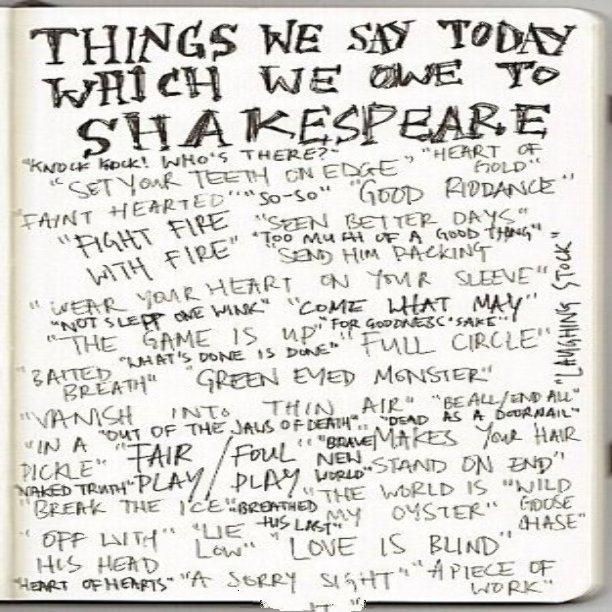 THINGS WE SAY TODAY
WHICH WE OWE TO
SHAKESPEARE
"KNOCK KNOCK! WHO'S THERE?" "HEART OF GOLD"
"SET YOUR TEETH ON EDGE"
"FAINT HEARTED" "SO-SO" "GOOD RIDDANCE"
"FIGHT FIRE WITH FIRE" "SEEN BETTER DAYS"
"TOO MUCH OF A GOOD THING"
"SEND HIM PACKING"
"WEAR YOUR HEART ON YOUR SLEEVE"
"LAUGHING STOCK"
"NOT SLEPT ONE WINK" "COME WHAT MAY"
"THE GAME IS UP" "FOR GOODNESS' SAKE"
"WHAT'S DONE IS DONE" "FULL CIRCLE"
"BAITED BREATH" "GREEN EYED MONSTER"
"VANISH INTO THIN AIR" "BE ALL/END ALL"
"OUT OF THE JAWS OF DEATH" "DEAD AS A DOORNAIL"
"IN A PICKLE" "FAIR PLAY/FOUL PLAY" "BRAVE NEW WORLD" "MAKES YOUR HAIR STAND ON END"
"NAKED TRUTH"
"BREAK THE ICE" "BREATHED HIS LAST" "THE WORLD IS MY OYSTER" "WILD GOOSE CHASE"
"OFF WITH HIS HEAD" "LIE LOW" "LOVE IS BLIND"
"HEART OF HEARTS" "A SORRY SIGHT" "A PIECE OF WORK"